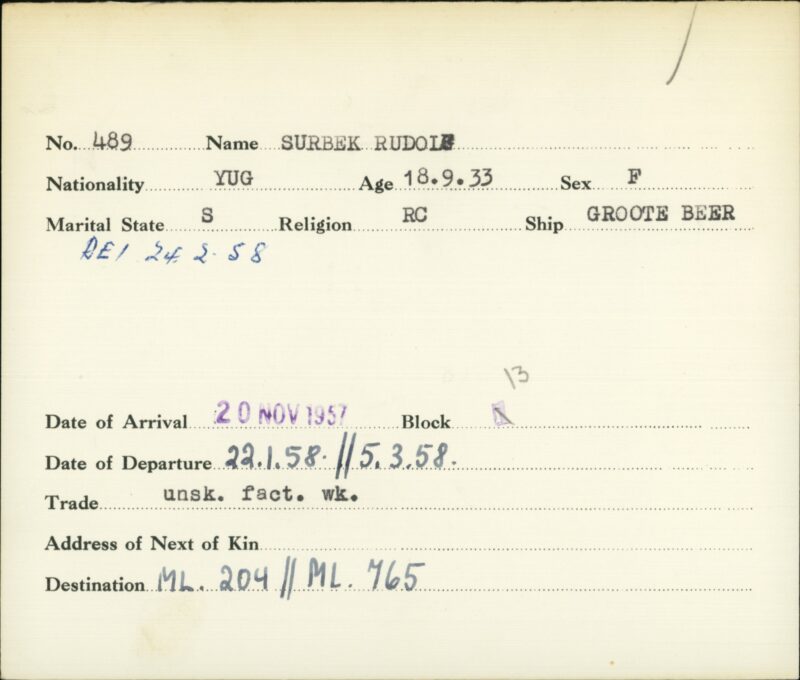 No. 489 Name SURBEK RUDOLF
Nationality YUG Age 18.9.33 Sex F
Marital State S Religion RC Ship GROOTE BEER
24.2.58
13
Date of Arrival 20 NOV 1957 Block
Date of Departure 22.1.58. // 5.3.58.
Trade unsk. fact. wk.
Address of Next of Kin
Destination ML. 204 // ML. 765